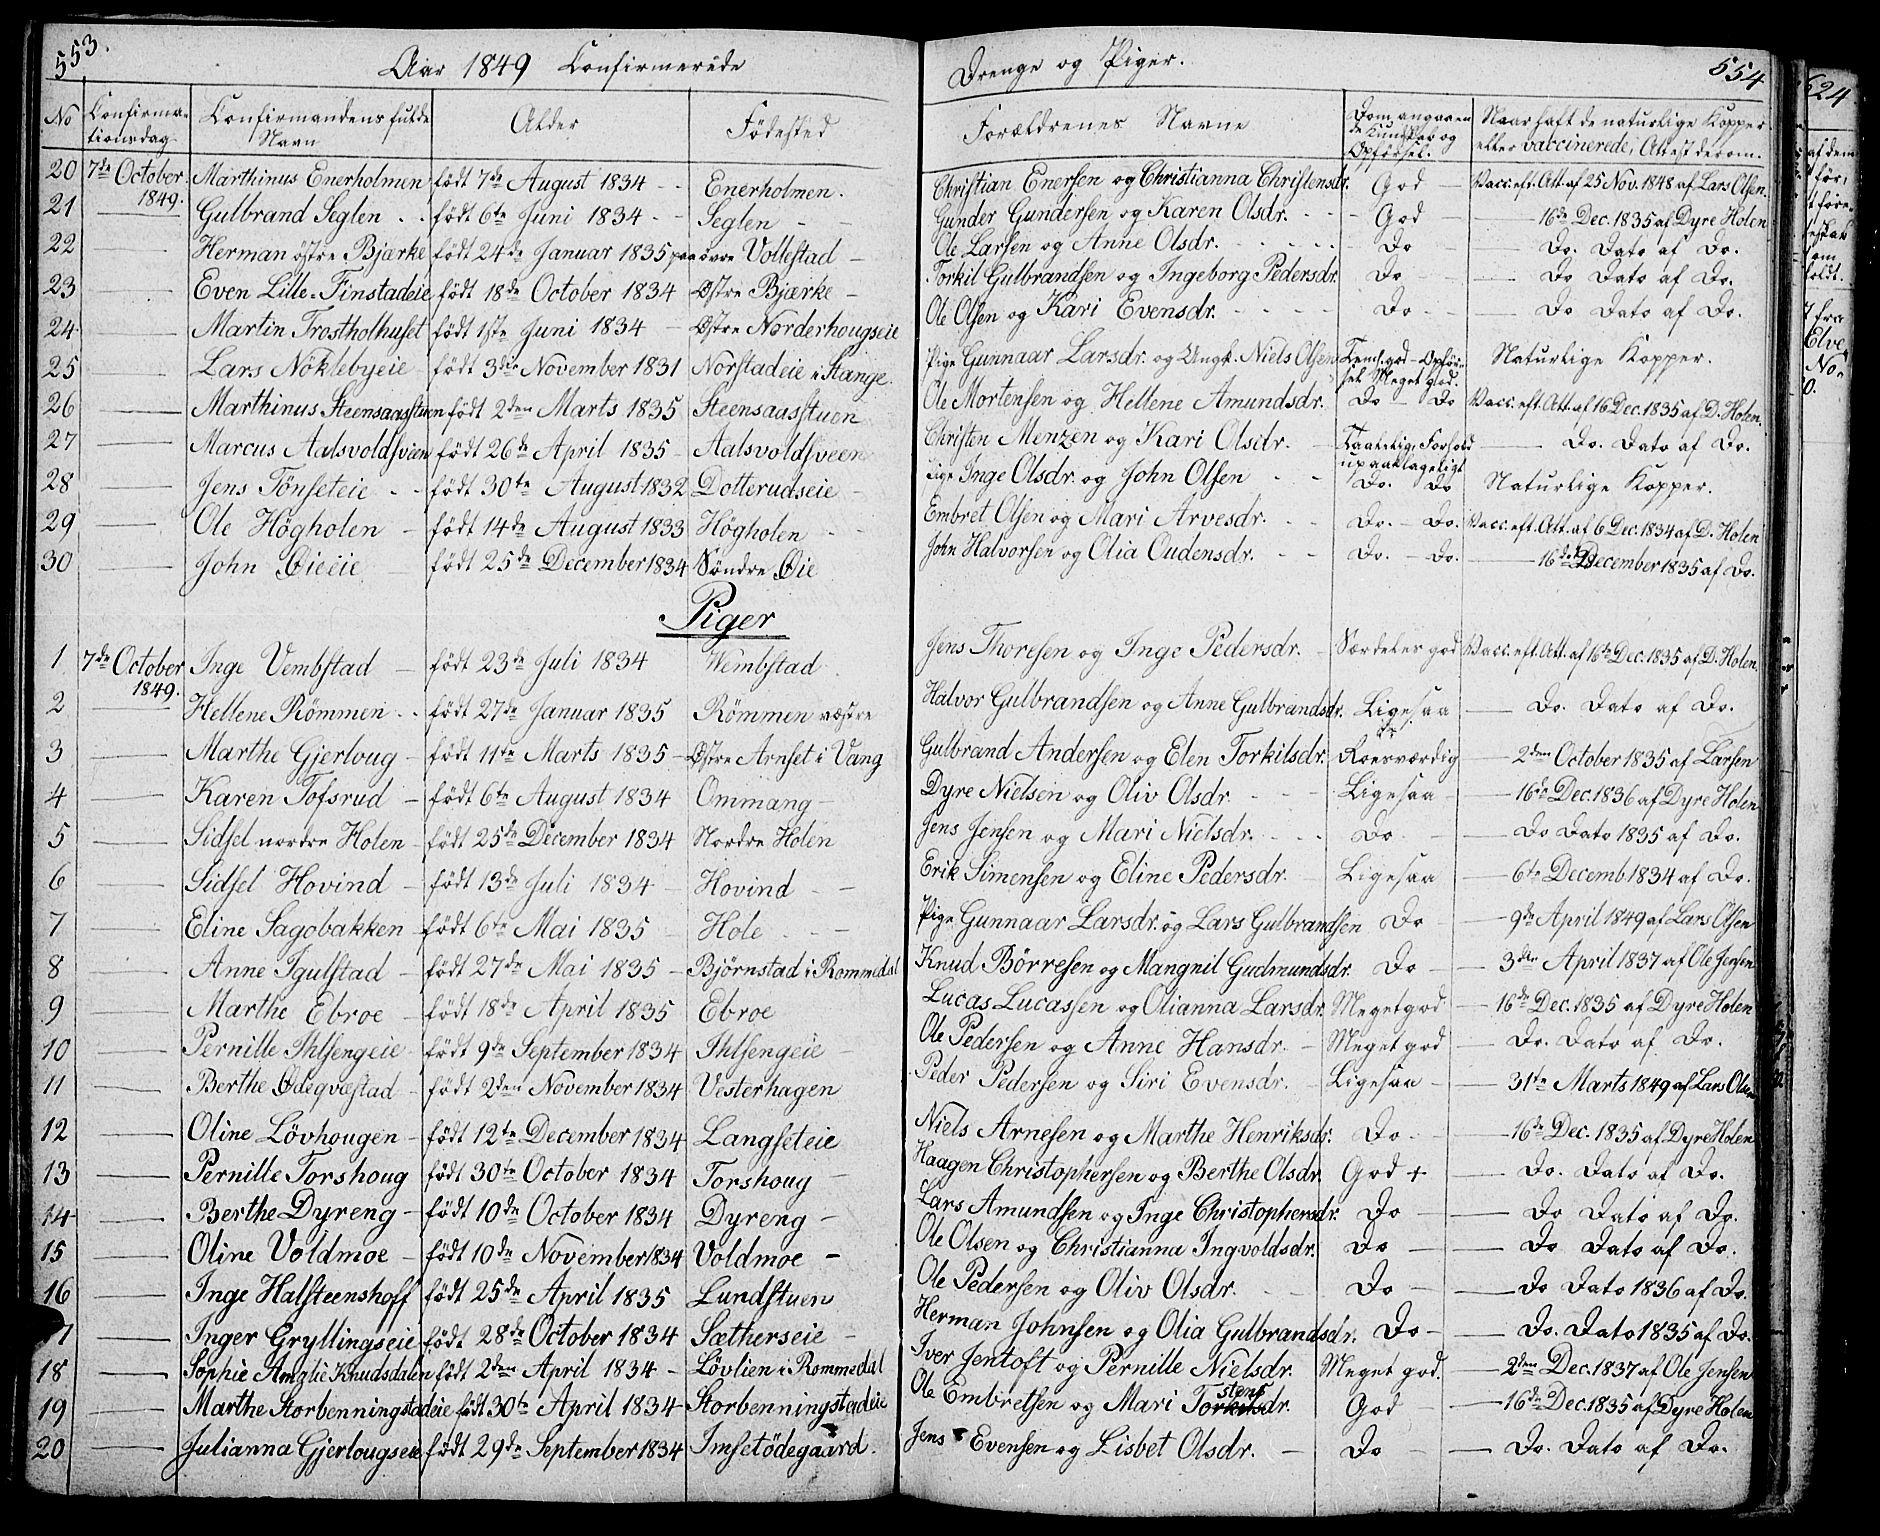 553.
Aar 1849 Confirmerede
Drenge og Piger.
554
No
Confirmationsdag
Confirmandens fulde Navn
Alder
Fødested
Forældrenes Navne
Dom angaaende Kundskab og Opførsel.
Naar haft de naturlige Kopper eller vaccinerede, Attest derom.
20 7de October 1849. Marthinus Enerholmen født 7de August 1834 - - Enerholmen. Christian Enersen og Christianna Christensdr. God - Vacc. eft. Att. af 25 Nov. 1848 af Lars Olsen.
21 Gulbrand Seglen - - født 6te Juni 1834 - - Seglen - Gunder Gundersen og Karen Olsdr. - - - God 16de Dec. 1835 af Dyre Holen
22 Herman østre Bjærke født 24de Januar 1835 paa øvre Vollestad - Ole Larsen og Anne Olsdr. - - - - Do Do. Dato af Do.
23 Even Lille-Finstadeie født 18de October 1834 - Østre Bjærke - Torkil Gulbrandsen og Ingeborg Pedersdr. Do - Do Dato af Do.
24 Martin Trostholhuset født 1ste Juni 1834 - Østre Norderhougseie Ole Olsen og Kari Evensdr. - - - - Do - Do Dato af Do.
25 Lars Nöklebyeie født 3die November 1831 Norstadeie i Stange. Pige Gunnaar Larsdr. og Ungk. Niels Olsen Teml. god - Opførsel Meget god. Naturlige Kopper.
26 Marthinus Steensaasstuen født 2den Marts 1835 Steensaasstuen Ole Mortensen og Hellene Amundsdr. Do - Do Vacc. eft. Att. af 16 Dec. 1835 af D. Holen.
27 Marcus Aalsvoldsveen født 26de April 1835 - Aalsvoldsveen Christen Menzen og Kari Olsdr. - Taalelig, Forhold upaaklageligt Do. Dato af Do.
28 Jens Tönseteie - - født 30te August 1832 Dotterudseie - Pige Inge Olsdr. og John Olsen - - Do. Do Naturlige Kopper.
29 Ole Högholen - født 14de August 1833 Högholen - Embret Olsen og Mari Arvesdr. - - Do. - Do. Vacc. eft. Att. af 6 Dec. 1834 af D. Holen
30 John Øieeie - født 25de December 1834 Söndre Øie John Halvorsen og Olia Oudensdr. - - Do. - Do. 16de December 1835 af Do.
Piger
1 7de October 1849. Inge Vembstad - født 23de Juli 1834 Wembstad Jens Thoresen og Inge Pedersdr. - Særdeles god Vacc. eft. Att. af 16te Dec. 1835 af D. Holen
2 Hellene Römmen - - født 27de Januar 1835 Römmen væstre Halvor Gulbrandsen og Anne Gulbrandsdr. Ligesaa Do. Dato af Do.
3 Marthe Gjerloug - født 11te Marts 1835 - Østre Arnset i Vang Gulbrand Andersen og Elen Torkilsdr. Roesværdig 2den October 1835 af Larsen
4 Karen Tofsrud - født 6te August 1834 Ommang - Dyre Nielsen og Oliv Olsdr. - - - Ligesaa 16de Dec. 1836 af Dyre Holen
5 Sidsel nordre Holen - født 25de December 1834 Nordre Holen Jens Jensen og Mari Nielsdr. - - - Do. Do Dato 1835 af Do.
6 Sidsel Hovind - født 13de Juli 1834 - Hovind - - Erik Simensen og Eline Pedersdr. - Ligesaa 6te Decemb. 1834 af Do.
7 Eline Sagobakken - født 6te Mai 1835 Hole - - - Pige Gunnaar Larsdr. og Lars Gulbrandsen Do 9de April 1849 af Lars Olsen
8 Anne Igulstad - født 27de Mai 1835 - Bjørnstad i Rommedal Knud Börresen og Mangnil Gudmundsdr. Do 3die April 1837 af Ole Jensen
9 Marthe Ebroe - født 18de April 1835 Ebroe Lucas Lucassen og Olianna Larsdr. Meget god 16de Dec. 1835 af Dyre Holen
10 Pernille Ihlsengeie - født 9de September 1834 Ihlsengeie - Ole Pedersen og Anne Hansdr. - Meget god Do. Dato af Do.
11 Berthe Ødeqvæstad - født 2den November 1834 Vesterhagen Peder Pedersen og Siri Evensdr. - Ligesaa - 31te Marts 1849 af Lars Olsen
12 Oline Lövhougen - født 12te December 1834 Langseteie Niels Arnesen og Marthe Henriksdr. Do - 16de Dec. 1835 af Dyre Holen
13 Pernille Torshoug født 30te October 1834 Torshoug - Haagen Christophersen og Berthe Olsdr. God + Do. Dato af Do.
14 Berthe Dyreng - født 10de October 1834 Dyreng - Lars Amundsen og Inge Christophersdr. Do Do Dato af Do.
15 Oline Voldmoe - født 10de November 1834 Voldmoe - Ole Olsen og Christianna Ingvoldsdr. Do Do Dato af Do.
16 Inge Halsteenshoff født 25de April 1835 Lundstuen Ole Pedersen og Oliv Olsdr. - - Do Do Dato 1836 af Do.
17 Inger Gryllingseie født 28de October 1834 Sætherseie - Herman Johnsen og Olia Gulbrandsdr. Do - Do. Dato 1835 af Do.
18 Sophie Amalie Knudsdalen født 2den April 1834 - Lövlien i Rommedal Iver Jentoft og Pernille Nielsdr. Meget god. 2den Dec. 1837 af Ole Jensen
19 Marthe Storbenningstadeie født 30te April 1834 - Storbenningstadeie Ole Embretsen og Mari Torstensdr. God - 16de Dec. 1835 af Dyre Holen
20 Julianna Gjerlougseie født 29de September 1834 Imsetödegaard. Jens Evensen og Lisbet Olsdr. - Do Do. Dato af Do.
624